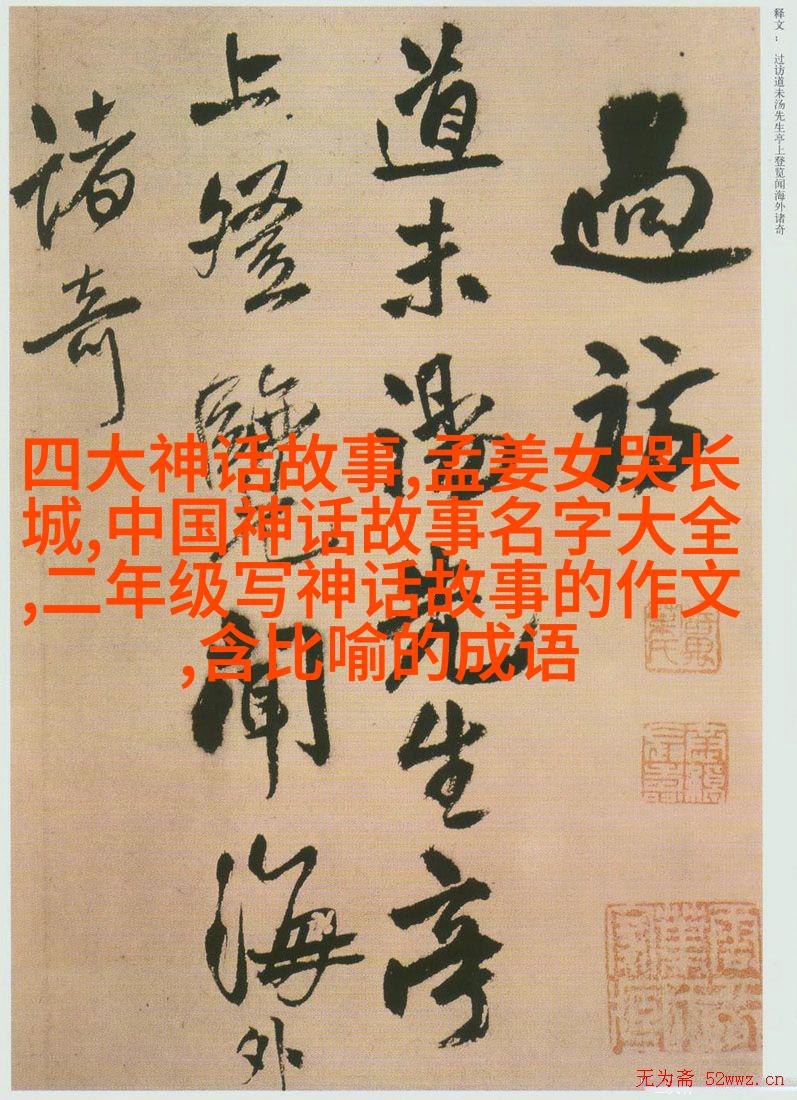 释文： 过访道未汤先生亭上登览闻海外诸奇
過訪
道未湯先生亭
上登覽聞海外
諸奇
四大神话故事,孟姜女哭长
城,中国神话故事名字大全
,二年级写神话故事的作文
,含比喻的成语
无为斋 52wwz.cn